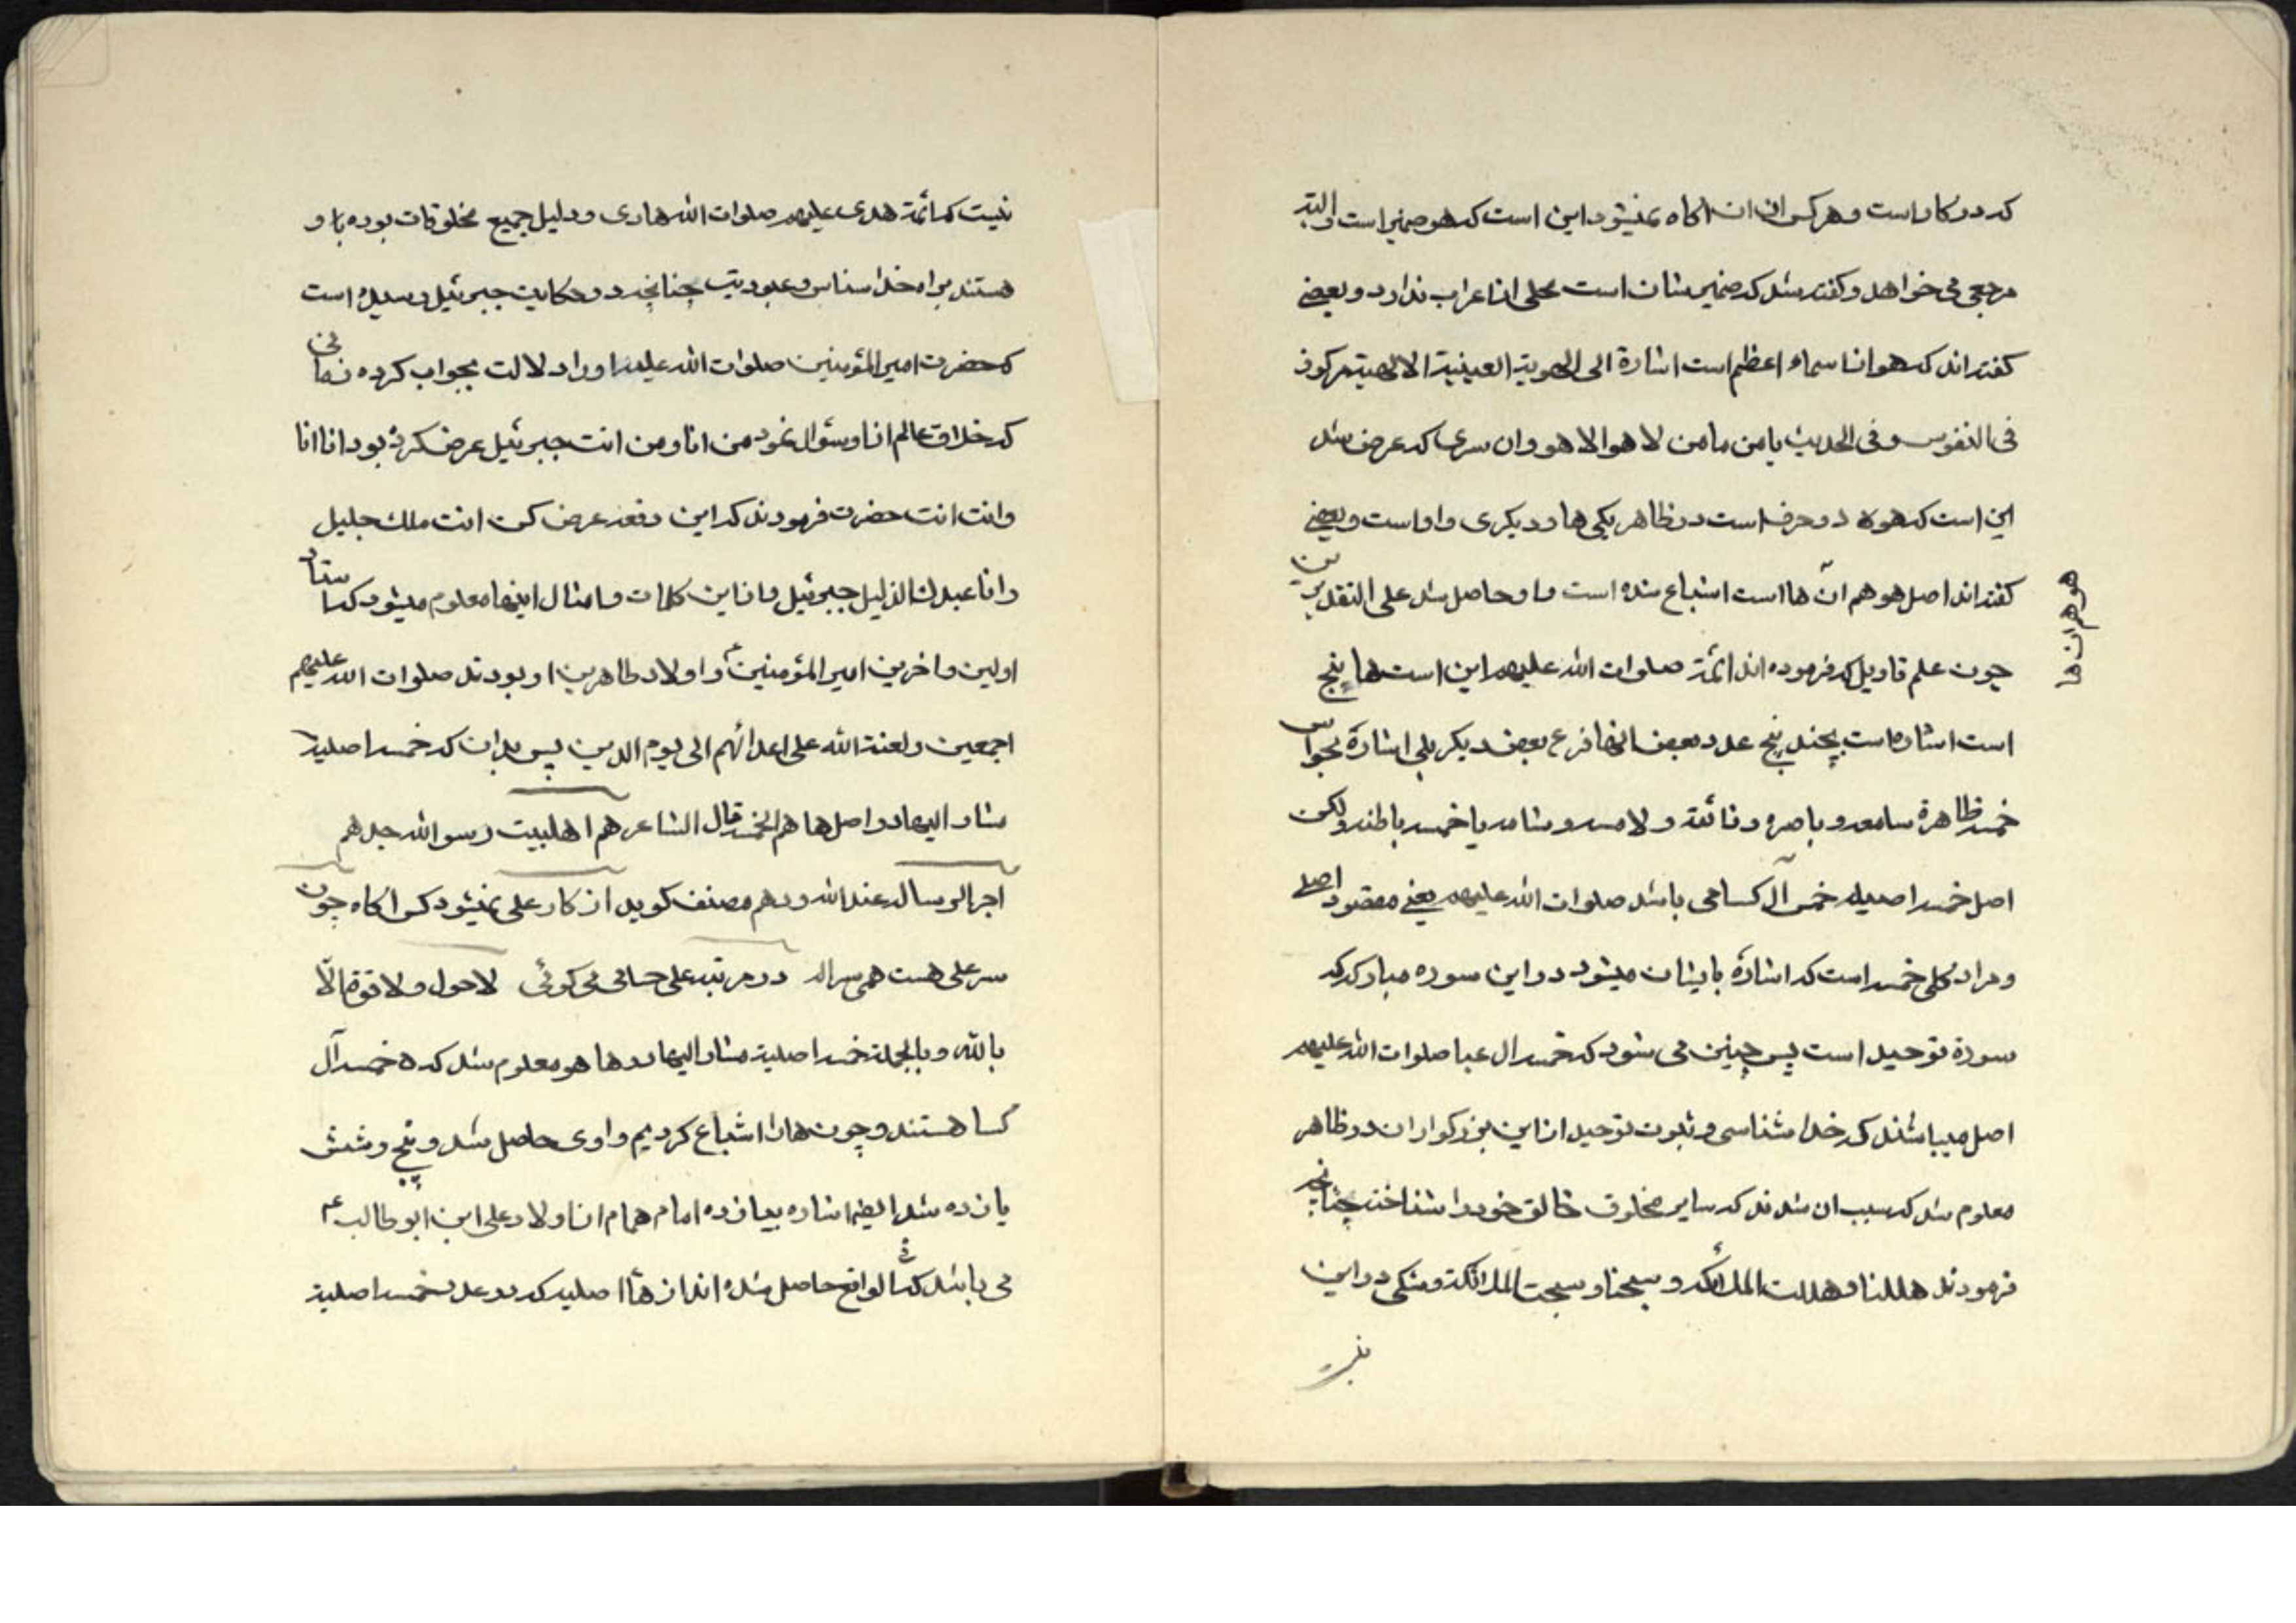 که در کار است و هر کس از ان اکاه نمیشود این است که هو ضمیر است و البته
مرجعی می خواهد و گفته شد که ضمیر شان است محلی از اعراب ندارد و بعضی
کفته اند که هو از اسماء اعظم است اشارة الی الهویة العینیة الالهیة مرکوز
فی النفوس و فی الحدیث یا من لا هو الا هو و ان سری که عرض شد
این است که هو دو حرف است در ظاهر یکی ها و دیکری واو است و بعضی
کفته اند اصل هو هم ان ها است اشباع شده است واو حاصل شد علی التقدیرین
چون علم تاویل که فرموده اند ائمّة صلوات الله علیهم این است ها پنج
است اشاره است بچند پنج عدد بعض انها فرع بعض دیکر بلی اشارة بحواس
خمسه ظاهرة سامعه و باصره و ذائقة و لامسه و شامه یا خمسه باطنه ولکن
اصل خمسه اصیله خمس آل کسا می باشد صلوات الله علیهم یعنی مقصود اصلی
و مراد کلی خمسه است که اشارة بایشان میشود در این سوره مبارکه که
سورة توحید است پس چنین می شود که خمسه ال عبا صلوات الله علیهم
اصل میباشند که خدا شناسی و ثبوت توحید از این بزرکواران در ظاهر
معلوم شد که سبب ان شدند که سایر مخلوق خالق خود را شناختند چنانچه
فرمودند هللنا و هللت الملائکه و سبحنا و سبحت الملائکة و شکی در این
هو هم ان ها
نیست که ائمّة هدی علیهم صلوات الله هادی و دلیل جمیع مخلوقات بوده
هستند براه خدا شناسی و عبودیت چنانچه در حکایت جبرئیل رسیده است
که حضرت امیر المؤمنین صلوات الله علیه او را دلالت بجواب کرده
که خلاق عالم از او سؤال نمود من انا و من انت جبرئیل عرض کرده بود انا انا
و انت انت حضرت فرمودند که این دفعه عرض کن انت ملك جلیل
و انا عبدك الذلیل جبرئیل و از این کلمات و امثال اینها معلوم میشود که استاد
اولین و اخرین امیر المؤمنین ع و اولاد طاهرین او بودند صلوات الله علیهم
اجمعین و لعنة الله علی اعدائهم الی یوم الدین پس بدان که خمسه اصلیة
مشار الیها در اصل ها هم الخمسه قال الشاعر هم اهلبیت رسو الله جدهم
اجر الرساله عند الله ودهم مصنف کوید از کار علی نمیشود کس اکاه چون
سر علی هست همی سر اله در مرتبه علی چسان می کوئی لا حول و لا قوة الّا
بالله و بالجملة خمسه اصلیة مشار الیها در ها هو معلوم شد که ه خمسه آل
کسا هستند و چون ها را اشباع کردیم واوی حاصل شد و پنج و شش
یازده شد ایضا اشاره بیازده امام همام از اولاد علی ابن ابو طالب ع
می باشد که فی الواقع حاصل شده اند از هاء اصلیه که در عدد خمسه اصلیة